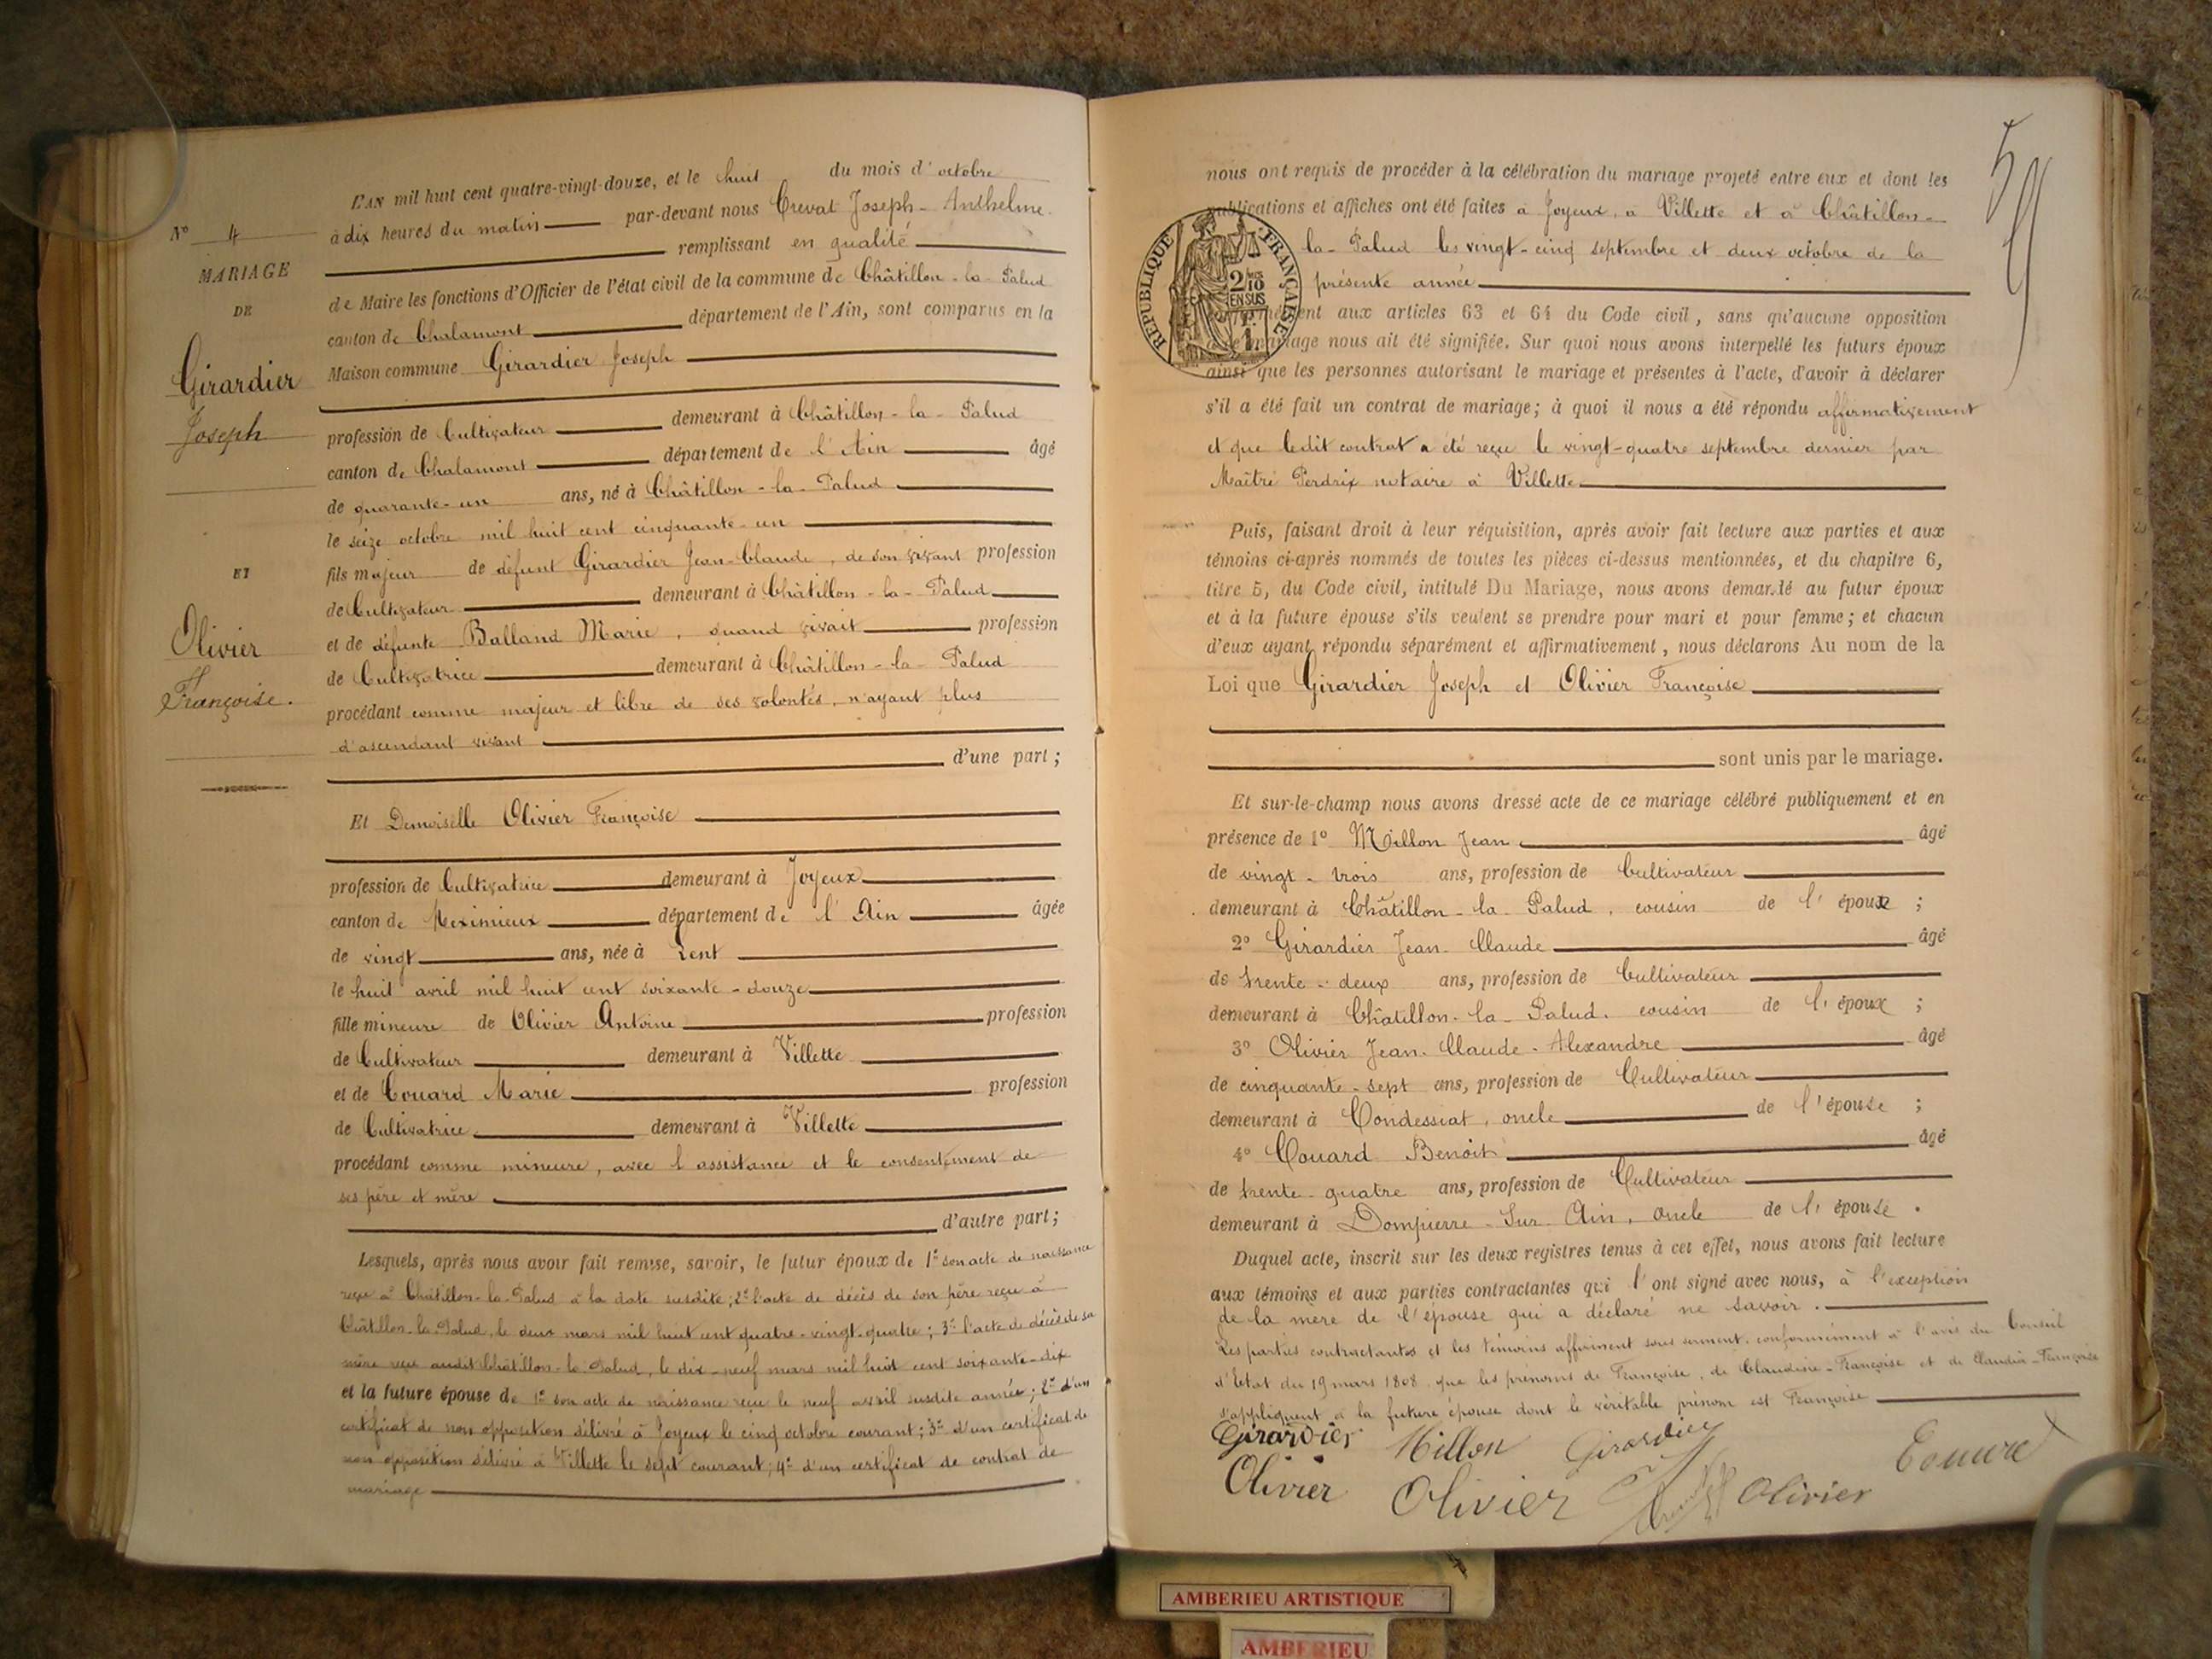 N° 4
MARIAGE
DE
Girardier
Joseph
ET
Olivier
Françoise.
L'AN mil huit cent quatre-vingt-douze, et le huit du mois d'octobre
à dix heures du matin par-devant nous Crevat Joseph-Anthelme.
remplissant en qualité
de Maire les fonctions d'Officier de l'état civil de la commune de Châtillon-la-Palud
canton de Chalamont département de l'Ain, sont comparus en la
Maison commune Girardier Joseph
profession de Cultivateur demeurant à Châtillon-la-Palud
canton de Chalamont département de l'Ain âgé
de quarante-un ans, né à Châtillon-la-Palud
le seize octobre mil huit cent cinquante-un
fils majeur de défunt Girardier Jean-Claude, de son vivant profession
de Cultivateur demeurant à Châtillon-la-Palud
et de défunte Balland Marie, quand vivait profession
de Cultivatrice demeurant à Châtillon-la-Palud
procédant comme majeur et libre de ses volontés, n'ayant plus
d'ascendant vivant
d'une part;
Et Demoiselle Olivier Françoise
profession de Cultivatrice demeurant à Joyeux
canton de Meximieux département de l'Ain âgée
de vingt ans, née à Lent
le huit avril mil huit cent soixante-douze
fille mineure de Olivier Antoine profession
de Cultivateur demeurant à Villette
et de Couard Marie profession
de Cultivatrice demeurant à Villette
procédant comme mineure, avec l'assistance et le consentement de
ses père et mère
d'autre part;
Lesquels, après nous avoir fait remise, savoir, le futur époux de 1° son acte de naissance
reçu à Châtillon-la-Palud à la date susdite; 2° l'acte de décès de son père reçu à
Châtillon-la-Palud, le deux mars mil huit cent quatre-vingt-quatre; 3° l'acte de décès de sa
mère reçu audit Châtillon-la-Palud, le dix-neuf mars mil huit cent soixante-dix
et la future épouse de 1° son acte de naissance reçu le neuf avril susdite année; 2° d'un
certificat de non opposition délivré à Joyeux le cinq octobre courant; 3° d'un certificat de
non opposition délivré à Villette le sept courant; 4° d'un certificat de contrat de
mariage
nous ont requis de procéder à la célébration du mariage projeté entre eux et dont les
publications et affiches ont été faites à Joyeux, à Villette et à Châtillon-
la-Palud les vingt-cinq septembre et deux octobre de la
présente année
REPUBLIQUE FRANÇAISE
2/10
EN SUS
aux articles 63 et 64 du Code civil, sans qu'aucune opposition
mariage nous ait été signifiée. Sur quoi nous avons interpellé les futurs époux
ainsi que les personnes autorisant le mariage et présentes à l'acte, d'avoir à déclarer
s'il a été fait un contrat de mariage; à quoi il nous a été répondu affirmativement
et que ledit contrat a été reçu le vingt-quatre septembre dernier par
Maître Perdrix notaire à Villette
Puis, faisant droit à leur réquisition, après avoir fait lecture aux parties et aux
témoins ci-après nommés de toutes les pièces ci-dessus mentionnées, et du chapitre 6,
titre 5, du Code civil, intitulé Du Mariage, nous avons demandé au futur époux
et à la future épouse s'ils veulent se prendre pour mari et pour femme; et chacun
d'eux ayant répondu séparément et affirmativement, nous déclarons Au nom de la
Loi que Girardier Joseph et Olivier Françoise
sont unis par le mariage.
Et sur-le-champ nous avons dressé acte de ce mariage célébré publiquement et en
présence de 1° Millon Jean âgé
de vingt-trois ans, profession de Cultivateur
demeurant à Châtillon-la-Palud, cousin de l'époux;
2° Girardier Jean-Claude âgé
de trente-deux ans, profession de Cultivateur
demeurant à Châtillon-la-Palud, cousin de l'époux;
3° Olivier Jean-Claude-Alexandre âgé
de cinquante-sept ans, profession de Cultivateur
demeurant à Condessiat, oncle de l'épouse;
4° Couard Benoit âgé
de trente-quatre ans, profession de Cultivateur
demeurant à Dompierre-Sur-Ain, oncle de l'épouse.
Duquel acte, inscrit sur les deux registres tenus à cet effet, nous avons fait lecture
aux témoins et aux parties contractantes qui l'ont signé avec nous, à l'exception
de la mère de l'épouse qui a déclaré ne savoir.
Les parties contractantes et les témoins affirment sous serment, conformément à l'avis du Conseil
d'Etat du 19 mars 1808 que les prénoms de Françoise, de Claudine-Françoise et de Claudia-Françoise
s'appliquent à la future épouse dont le véritable prénom est Françoise
Girardier Millon Girardier
Olivier Olivier Olivier Couard
AMBERIEU ARTISTIQUE
AMBERIEU